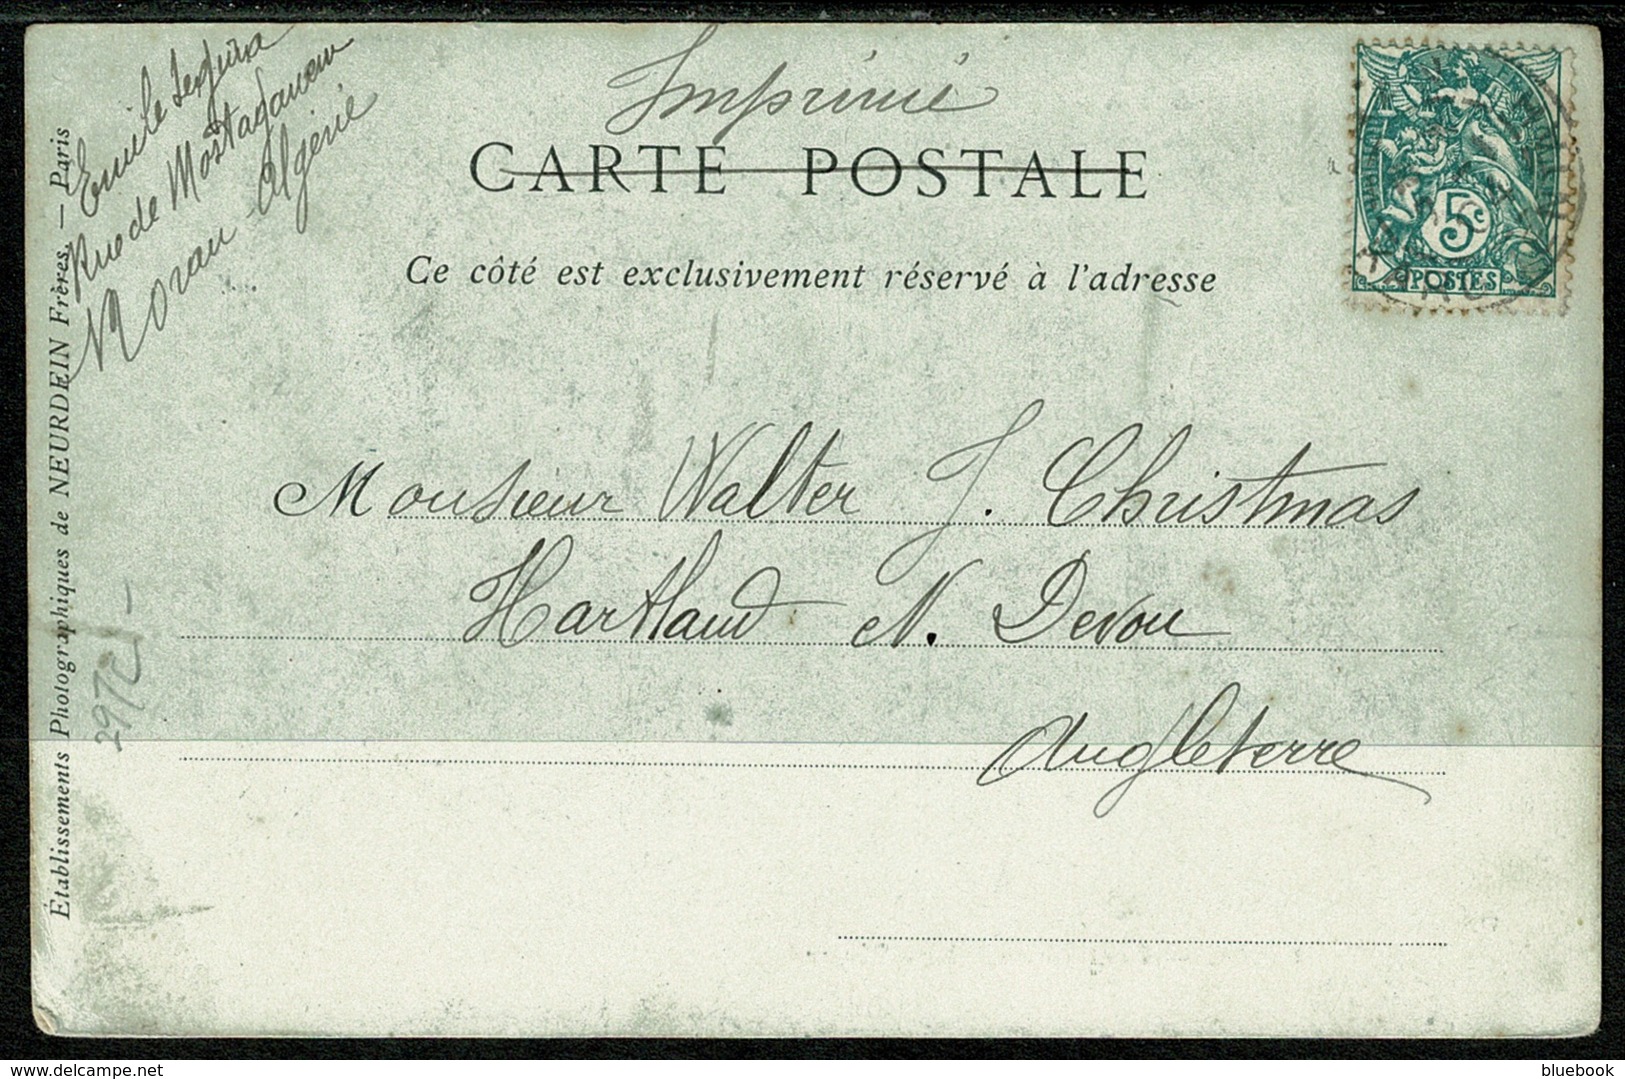 Imprimé
CARTE POSTALE
Ce côté est exclusivement réservé à l'adresse
5c
POSTES
Emile
Rue de Mostaganem
Algérie
Établissements Photographiques de NEURDEIN Frères. — Paris
Monsieur Walter J. Christmas
Hartland N. Devon
Angleterre
2972
delcampe.net
bluebook